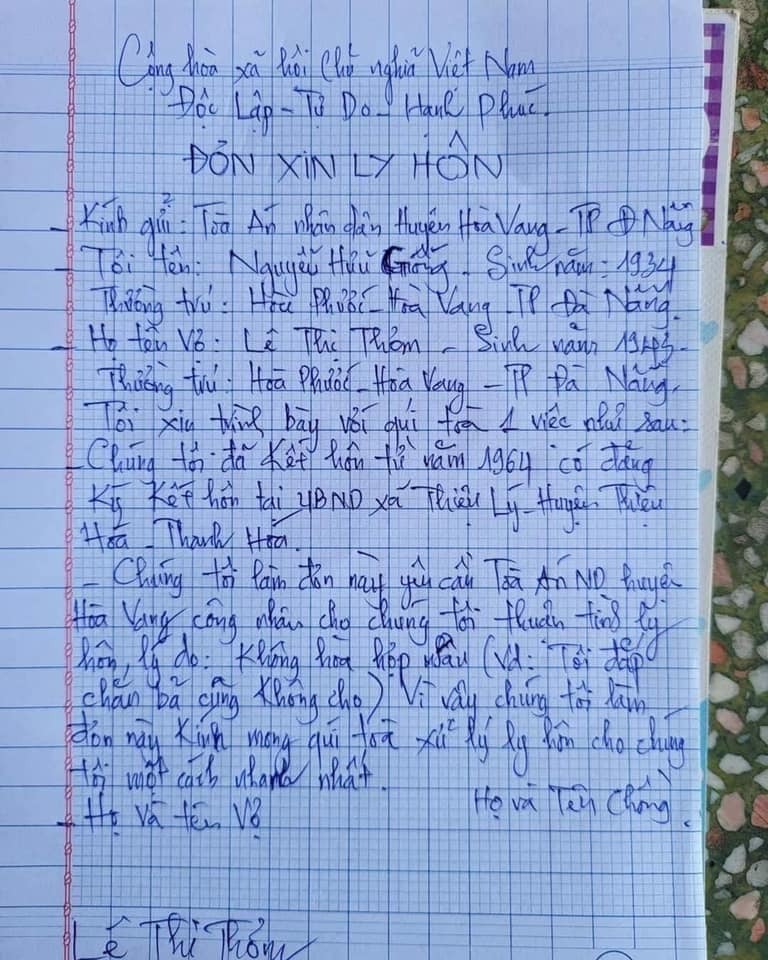 Cộng hòa xã hội Chủ nghĩa Việt Nam
Độc Lập - Tự Do - Hạnh Phúc.
ĐƠN XIN LY HÔN
- Kính gửi: Toà Án nhân dân Huyện Hoà Vang - TP Đ Nẵng
- Tôi tên: Nguyễn Hữu Sinh năm: 1934
Thường trú: Hòa Phước - Hoà Vang - TP Đà Nẵng.
- Họ tên Vợ: Lê Thị Thơm - Sinh năm 1943.
Thường trú: Hoà Phước - Hoà Vang - TP Đà Nẵng.
Tôi xin trình bày với quí toà 1 việc như sau:
- Chúng tôi đã kết hôn từ năm 1964 có đăng
Ký Kết hôn tại UBND xã Thiệu Lý - Huyện Thiệu
Hoá - Thanh Hóa.
- Chúng tôi làm đơn này yêu cầu Toà Án ND huyện
Hòa Vang công nhận cho chúng tôi thuận tình ly
hôn, lý do: Không hòa hợp nhau (Vd: Tôi đắp
chăn bả cũng Không cho) Vì vậy chúng tôi làm
đơn này Kính mong quí toà xử lý ly hôn cho chúng
tôi một cách nhanh nhất.
Họ và Tên Chồng.
- Họ và tên Vợ
Lê Thị Thơm